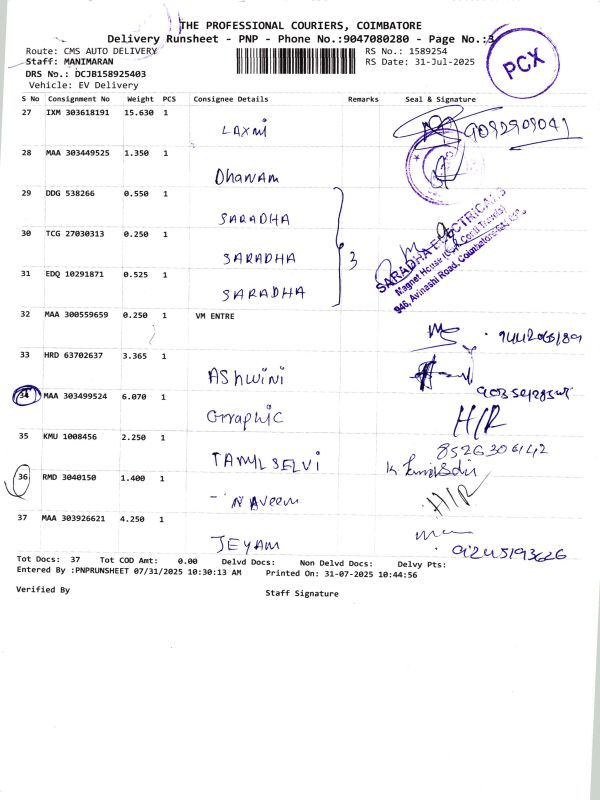 THE PROFESSIONAL COURIERS, COIMBATORE
Delivery Runsheet - PNP - Phone No.:9047080280 - Page No.:3
Route: CMS AUTO DELIVERY RS No.: 1589254
Staff: MANIMARAN RS Date: 31-Jul-2025
DRS No.: DCJB158925403
Vehicle: EV Delivery
PCX
S No Consignment No Weight PCS Consignee Details Remarks Seal & Signature
27 IXM 303618191 15.630 1
Laxmi
28 MAA 303449525 1.350 1
Dhanam
29 DDG 538266 0.550 1
SARADHA
30 TCG 27030313 0.250 1
SARADHA 3
31 EDQ 10291871 0.525 1
SARADHA
SARADHA ELECTRICALS
946, Avinashi Road, Coimbatore
32 MAA 300559659 0.250 1 VM ENTRE
33 HRD 63702637 3.365 1
Ashwini
34 MAA 303499524 6.070 1
Graphic H/R
35 KMU 1008456 2.250 1
TAMILSELVI 8526306142
36 RMD 3040150 1.400 1
- NAveem H/R
37 MAA 303926621 4.250 1
JEYAM
Tot Docs: 37 Tot COD Amt: 0.00 Delvd Docs: Non Delvd Docs: Delvy Pts:
Entered By :PNPRUNSHEET 07/31/2025 10:30:13 AM Printed On: 31-07-2025 10:44:56
Verified By Staff Signature